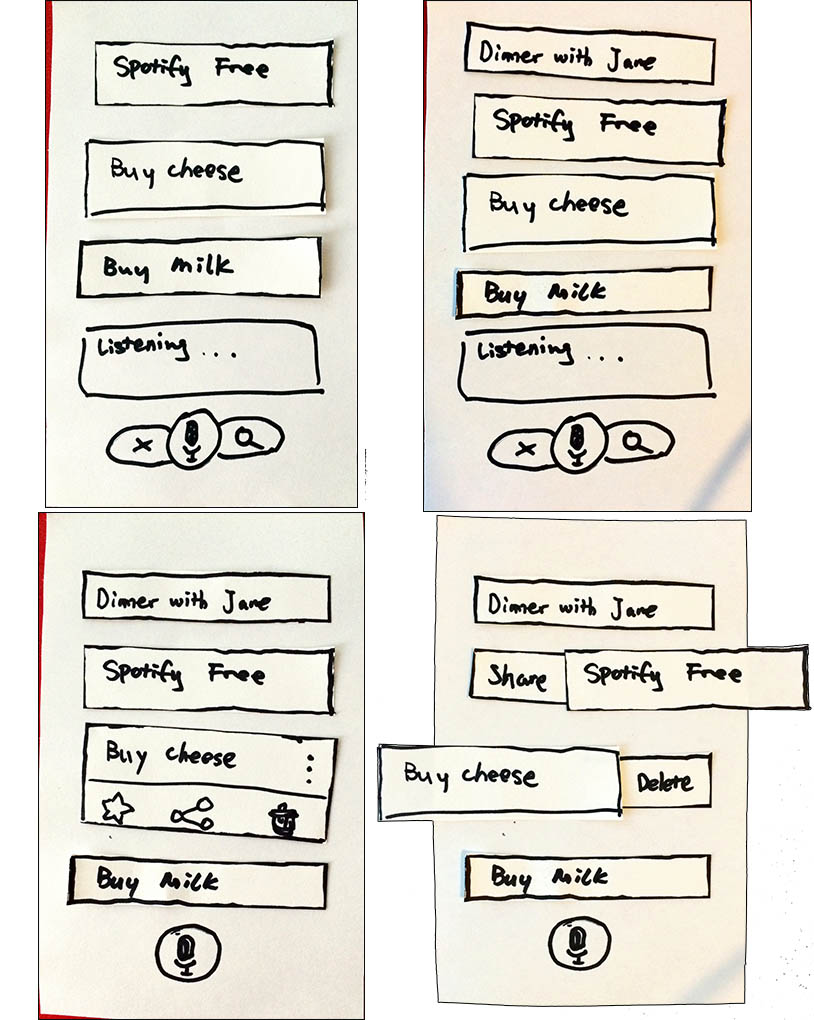 Spotify Free
Buy cheese
Buy Milk
Listening ...
Dinner with Jane
Spotify Free
Buy cheese
Buy Milk
Listening ...
Dinner with Jane
Spotify Free
Buy cheese
Buy Milk
Dinner with Jane
Share Spotify Free
Buy cheese Delete
Buy Milk